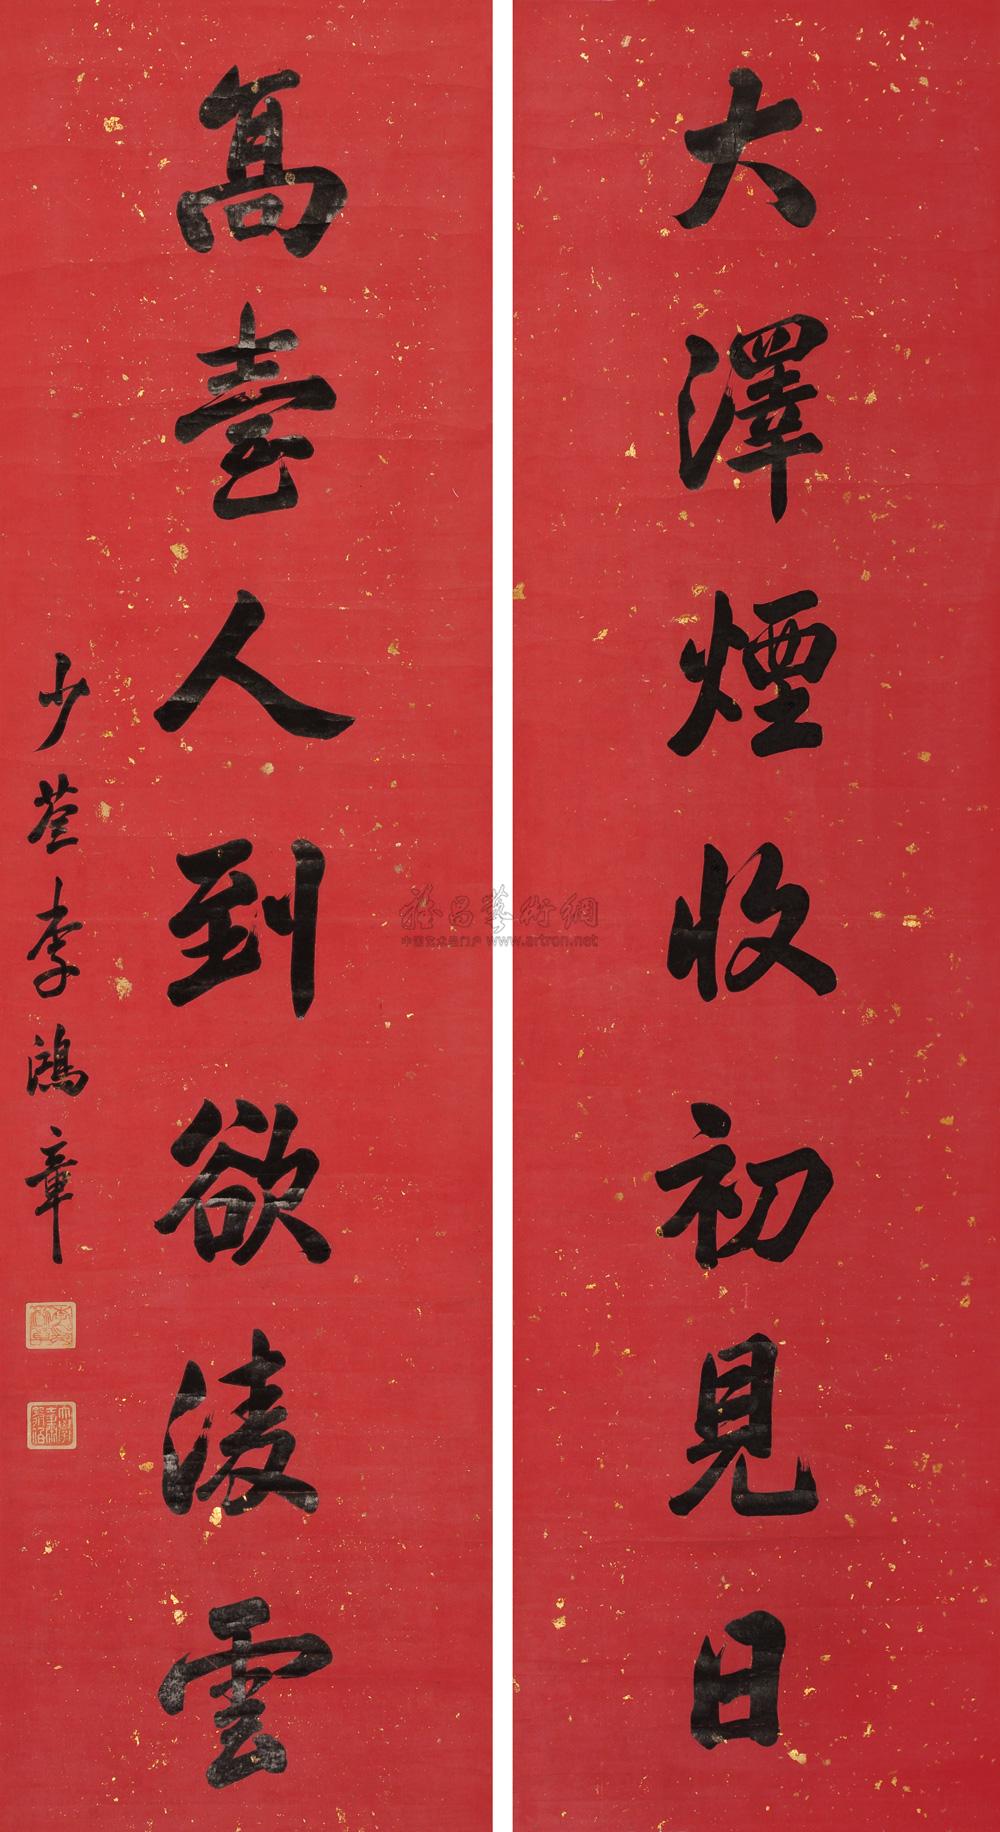 大澤煙收初見日
高臺人到欲淩雲
少荃李鴻章
雅昌藝術網
中国艺术品门户 www.artron.net